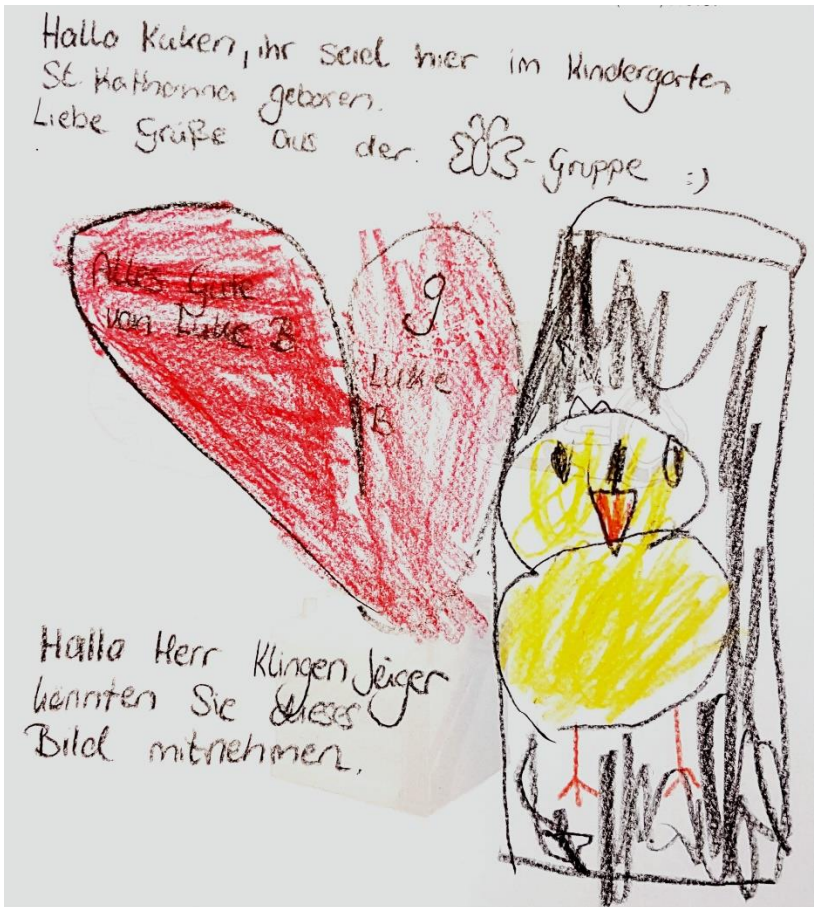 Hallo Küken, ihr seid hier im Kindergarten
St. Katharina geboren.
Liebe Grüße aus der -Gruppe :)
Alles Gute
von Luke B
g
Luke
B
Hallo Herr Klingen Jäger
kennten Sie dieses
Bild mitnehmen.